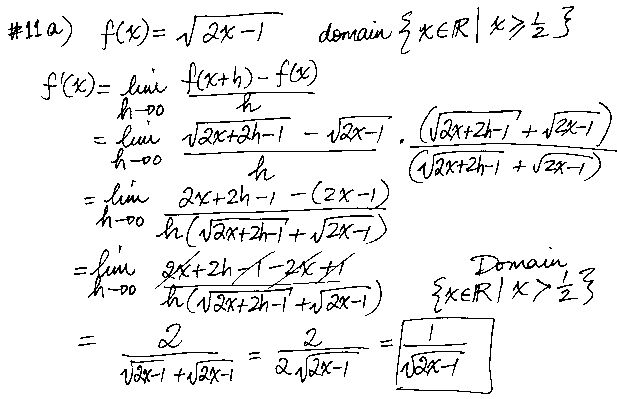 #11a) f(x) = √(2x-1) domain {x∈ℝ | x ≥ 1/2}
f'(x) = lim h→0 (f(x+h) - f(x))/h
= lim h→0 (√(2x+2h-1) - √(2x-1))/h · (√(2x+2h-1) + √(2x-1))/(√(2x+2h-1) + √(2x-1))
= lim h→0 (2x+2h-1-(2x-1))/(h(√(2x+2h-1) + √(2x-1)))
= lim h→0 (2x+2h-1-2x+1)/(h(√(2x+2h-1) + √(2x-1))) Domain {x∈ℝ | x > 1/2}
= 2/(√(2x-1) + √(2x-1)) = 2/(2√(2x-1)) = 1/√(2x-1)